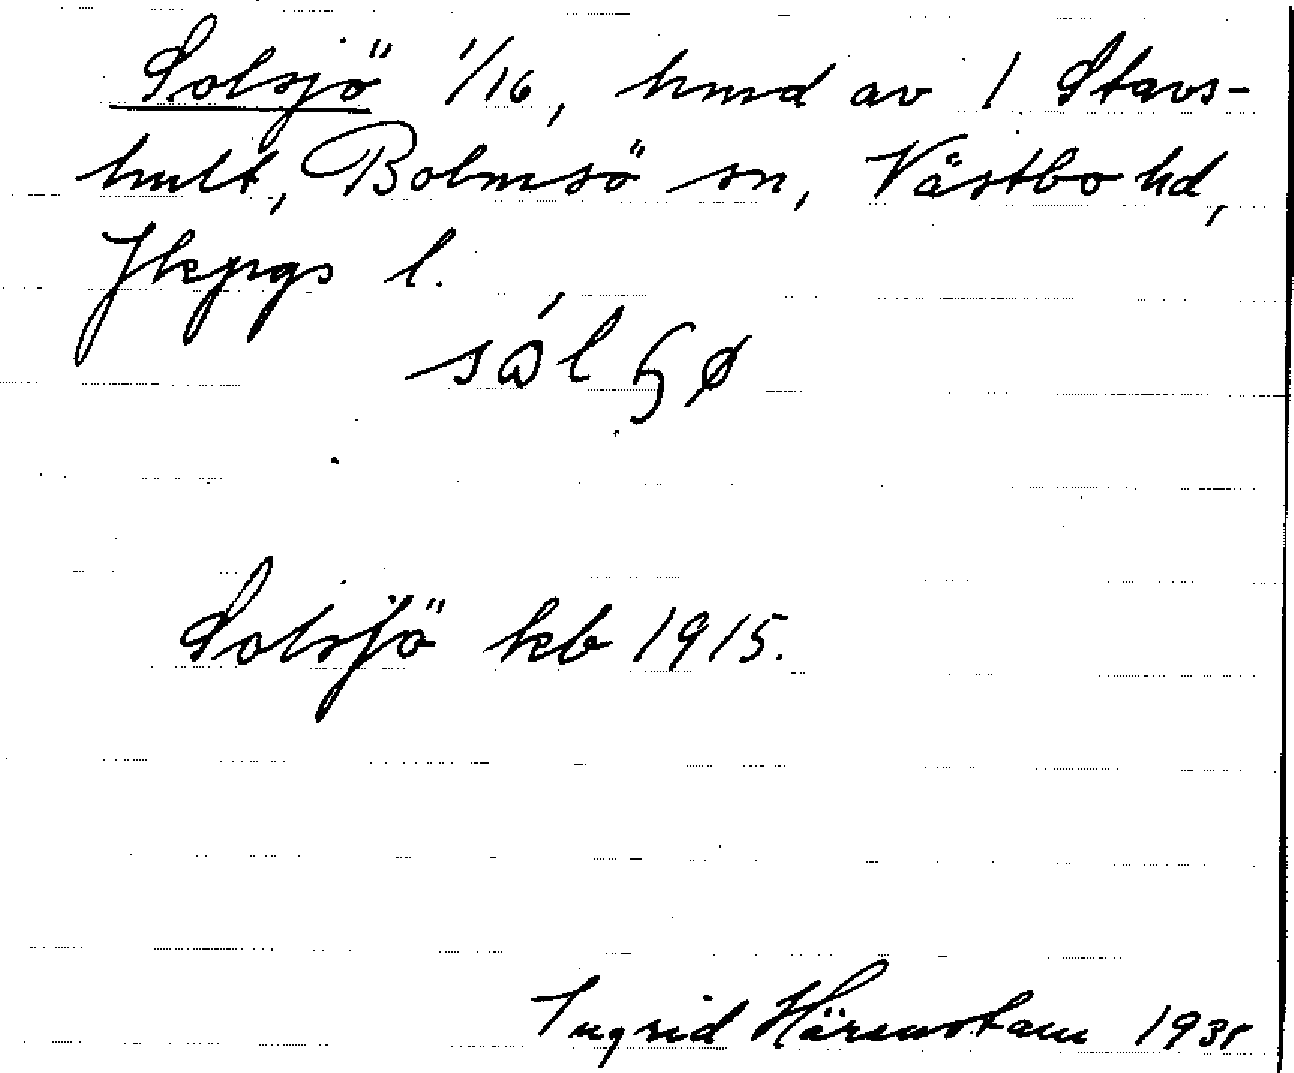 Solsjö 1/16, hmd av 1 Stavs-
hult, Bolmsö sn, Västbo hd,
Jkpgs l.
Solsjö kb 1915.
Ingrid Härenstam